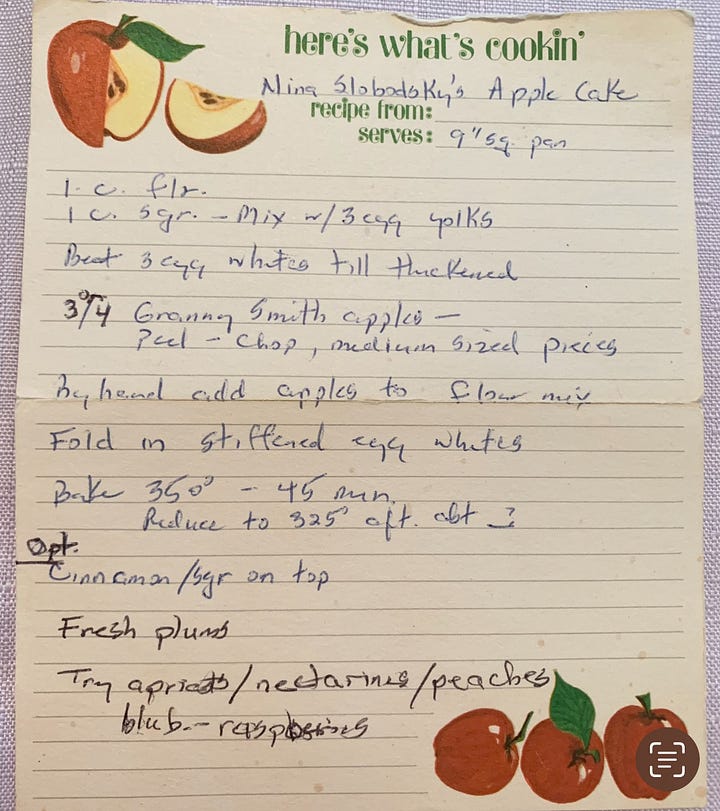 here's what's cookin'
Nina Slobodsky's Apple Cake
recipe from:
serves: 9" sq. pan
1. c. flr.
1 c. sgr. - Mix w/ 3 egg yolks
Beat 3 egg whites till thickened
3 or 4 Granny Smith apples -
Peel - Chop, medium sized pieces
By hand add apples to flour mix
Fold in stiffened egg whites
Bake 350° - 45 min.
Reduce to 325° aft. abt ?
Opt.
Cinnamon/sgr on top
Fresh plums
Try apricots/nectarines/peaches
blub. - raspberries